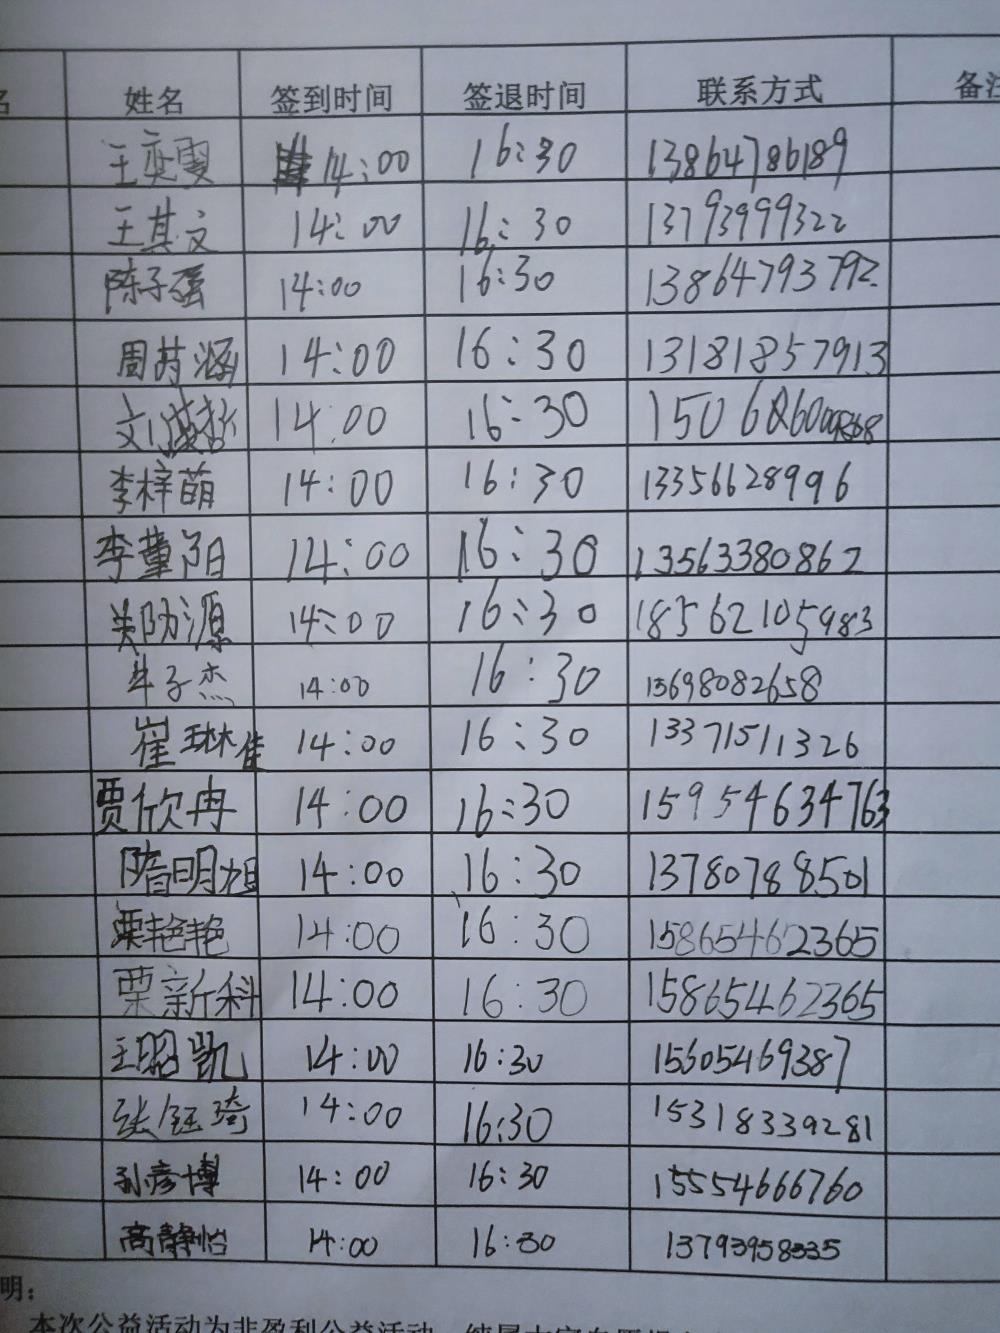 姓名 签到时间 签退时间 联系方式 备注
王奕雯 14:00 16:30 13864786189
王其文 14:00 16:30 13793999322
陈子强 14:00 16:30 13864793792
周芮涵 14:00 16:30 13181857913
14:00 16:30
李梓萌 14:00 16:30 13356628996
李董阳 14:00 16:30 13563380862
14:00 16:30 18562105983
牛子杰 14:00 16:30 13698082658
崔琳佳 14:00 16:30 13371511326
贾欣冉 14:00 16:30 15954634763
隋明旭 14:00 16:30 13780788501
栗艳艳 14:00 16:30 15865462365
栗新科 14:00 16:30 15865462365
王昭凯 14:00 16:30 15605469387
张钰琦 14:00 16:30 15318339281
孙彦博 14:00 16:30 15554666760
高静怡 14:00 16:30 13793958335
明：
本次公益活动为非盈利公益活动